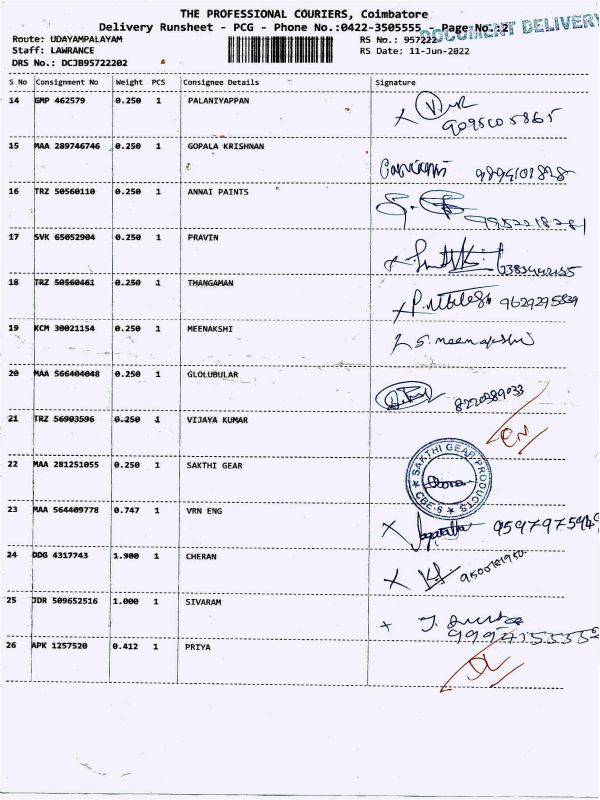 THE PROFESSIONAL COURIERS, Coimbatore
Delivery Runsheet - PCG - Phone No.:0422-3505555 - Page No.:2
DOCUMENT DELIVERY
Route: UDAYAMPALAYAM RS No.: 957222
Staff: LAWRANCE RS Date: 11-Jun-2022
DRS No.: DCJB95722202
S No Consignment No Weight PCS Consignee Details Signature
14 GMP 462579 0.250 1 PALANIYAPPAN
15 MAA 289746746 0.250 1 GOPALA KRISHNAN
16 TRZ 50560110 0.250 1 ANNAI PAINTS
17 SVK 65052904 0.250 1 PRAVIN
18 TRZ 50560461 0.250 1 THANGAMAN
9629295839
19 KCM 30021154 0.250 1 MEENAKSHI
S. meenakshi
20 MAA 566404048 0.250 1 GLOLUBULAR
8220289033
21 TRZ 56903596 0.250 1 VIJAYA KUMAR
22 MAA 281251055 0.250 1 SAKTHI GEAR
SAKTHI GEAR PRODUCTS
CBE-6
23 MAA 564409778 0.747 1 VRN ENG
24 DDG 4317743 1.900 1 CHERAN
25 JDR 509652516 1.000 1 SIVARAM
26 APK 1257520 0.412 1 PRIYA